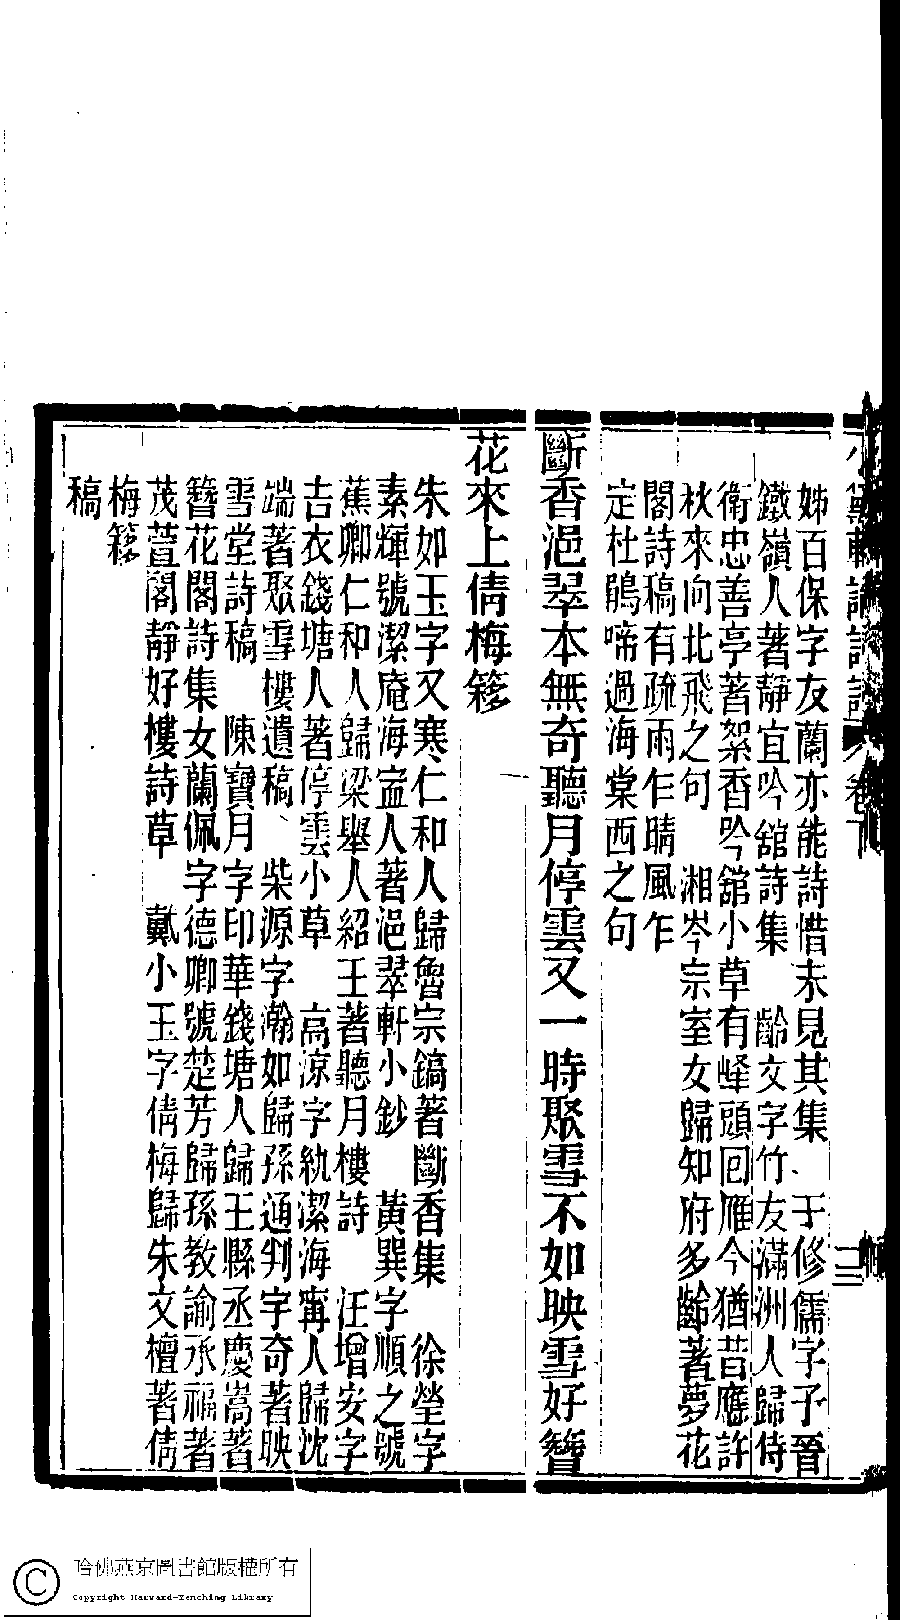 姊百保字友蘭亦能詩惜未見其集　于修儒字子晉
鐵嶺人著靜宜吟舘詩集　齡文字竹友滿洲人歸侍
衛忠善亭著絮香吟舘小草有峰頭回雁今猶昔應許
秋來向北飛之句　湘岑宗室女歸知府多齡著夢花
閣詩稿有疏雨乍晴風乍
定杜鵑啼過海棠西之句
斷香浥翠本無奇聽月停雲又一時聚雪不如映雪好簪
花來上倩梅簃
朱如玉字又寒仁和人歸魯宗鎬著斷香集　徐瑩字
素輝號潔庵海寍人著浥翠軒小鈔　黃巽字順之號
蕉卿仁和人歸梁舉人紹王著聽月樓詩　汪增安字
吉衣錢塘人著停雲小草　高涼字紈潔海甯人歸沈
端著聚雪樓遺稿　柴源字瀚如歸孫通判宇奇著映
雪堂詩稿　陳寶月字印華錢塘人歸王縣丞慶嵩著
簪花閣詩集女蘭佩字德卿號楚芳歸孫教諭承福著
茂萱閣靜好樓詩草　戴小玉字倩梅歸朱文檀著倩
梅簃
稿
哈佛燕京圖書館版權所有
Copyright Harvard-Yenching Library